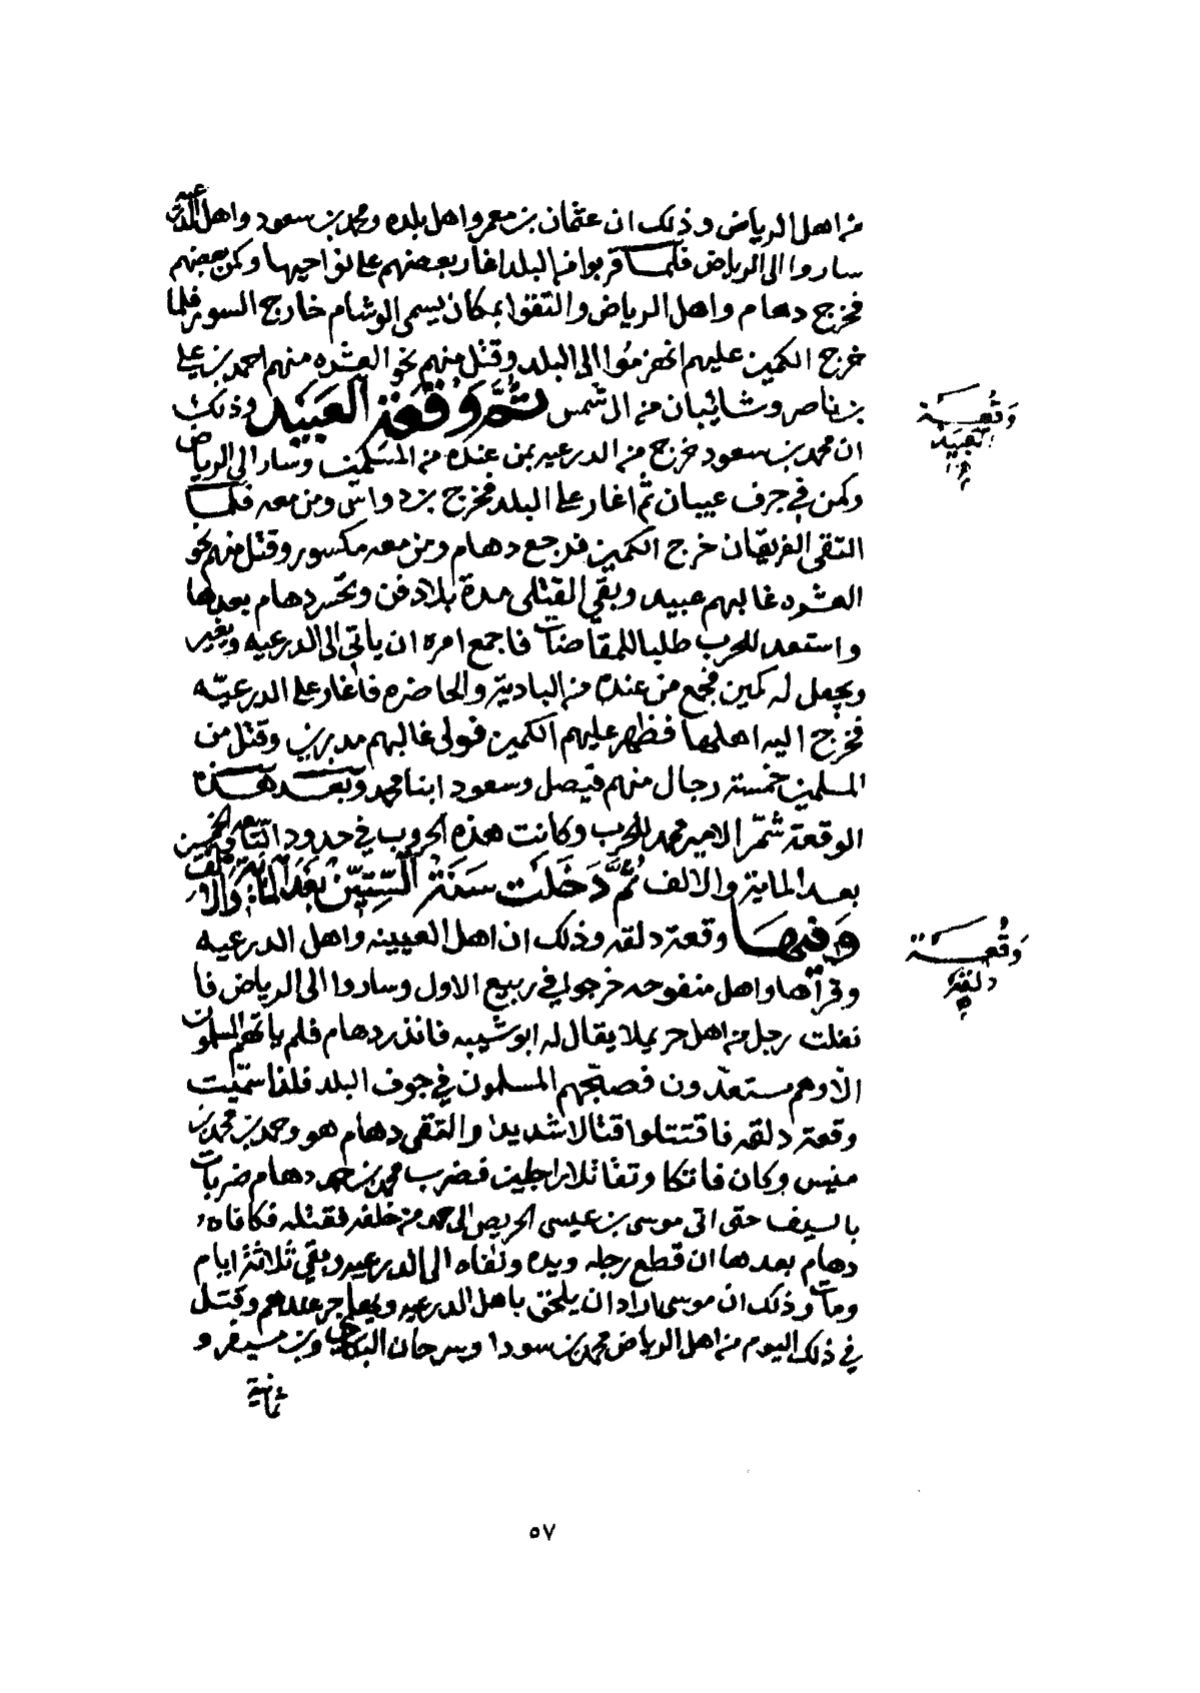 من اهل الرياض وذلك ان عثمان بن معمر واهل بلده ومحمد بن سعود واهل الدرعيه
ساروا الى الرياض فلما قربوا من البلد اغار بعضهم على نواحيها وكمن بعضهم
فخرج دهام واهل الرياض والتقوا بمكان يسمى الوشام خارج السور فلما
خرج الكمين عليهم انهزموا الى البلد وقتل منهم نحو العشره منهم احمد بن علي
بن ناصر وشائبان من ال شمس ثم وقعة العبيد وذلك
ان محمد بن سعود خرج من الدرعيه بمن عنده من المسلمين وسار الى الرياض
وكمن في جرف عبيان ثم اغار على البلد فخرج بن دواس ومن معه فلما
التقى الفريقان خرج الكمين فرجع دهام ومن معه مكسور وقتل منهم نحو
العشره غالبهم عبيد وبقي القتلى مدة بلا دفن وتحسر دهام بعدها
واستعد للحرب طلبا للمقاضات فاجمع امره ان ياتي الى الدرعيه ويغير
ويجعل له كمين فجمع من عنده من البادية والحاضره فاغار على الدرعيّه
فخرج اليه اهلها فظهر عليهم الكمين فولى غالبهم مدبرين وقتل من
المسلمين خمسة رجال منهم فيصل وسعود ابنا محمد وبعد هذه
الوقعة شمّر الامير محمد للحرب وكانت هذه الحروب في حدود التاسعه والخمسين
بعد الماية والالف ثُمَّ دَخَلَت سَنَة السِّتِيّن بَعدَ المائة والالف
وفيها وقعة دلقه وذلك ان اهل العيينه واهل الدرعيه
وقراها واهل منفوحه خرجوا في ربيع الاول وساروا الى الرياض فا
نفلت رجل من اهل حريملا يقال له ابو شيبه فانذر دهام فلم ياتهم المسلمون
الّا وهم مستعدّون فصبّحهم المسلمون في جوف البلد فلذا سمّيت
وقعة دلقه فاقتتلوا قتالا شديدا والتقى دهام هو وحمد بن محمد بن
منيس وكان فاتكا وتقاتلا راجلين فضرب محمد بن حمد دهام ضربات
بالسيف حتى اتى موسى بن عيسى الحريص الى حمد من خلفه فقتله فكافاه
دهام بعدها ان قطع رجله ويده ونفاه الى الدرعيه وبقي ثلاثة ايام
ومات وذلك ان موسى اراد ان يلحق باهل الدرعيه ويعاجر عندهم وقتل
في ذلك اليوم من اهل الرياض محمد بن سودا وسرحان البكاي وبن مسيفر و
ثمانية
وَقْعَة
العبيد
وَقْعَة
دلقة
٥٧